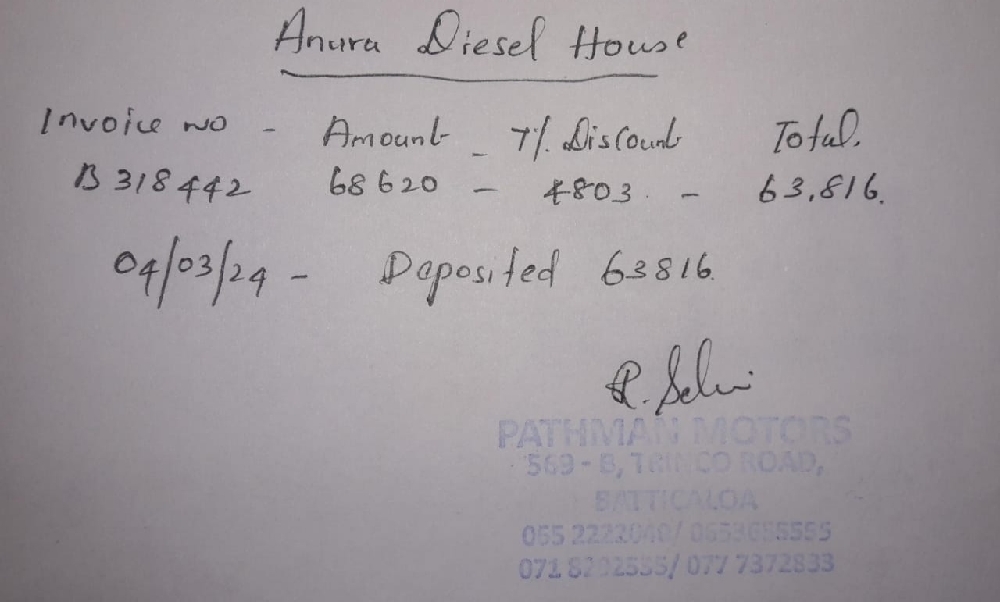 Anura Diesel House
Invoice no - Amount - 7% Discount Total.
B318442 68620 - 4803. - 63,816.
04/03/24 - Deposited 63816.
R. Selvi
PATHMAN MOTORS
569 - B, TRINCO ROAD,
BATTICALOA
055
077 7372833